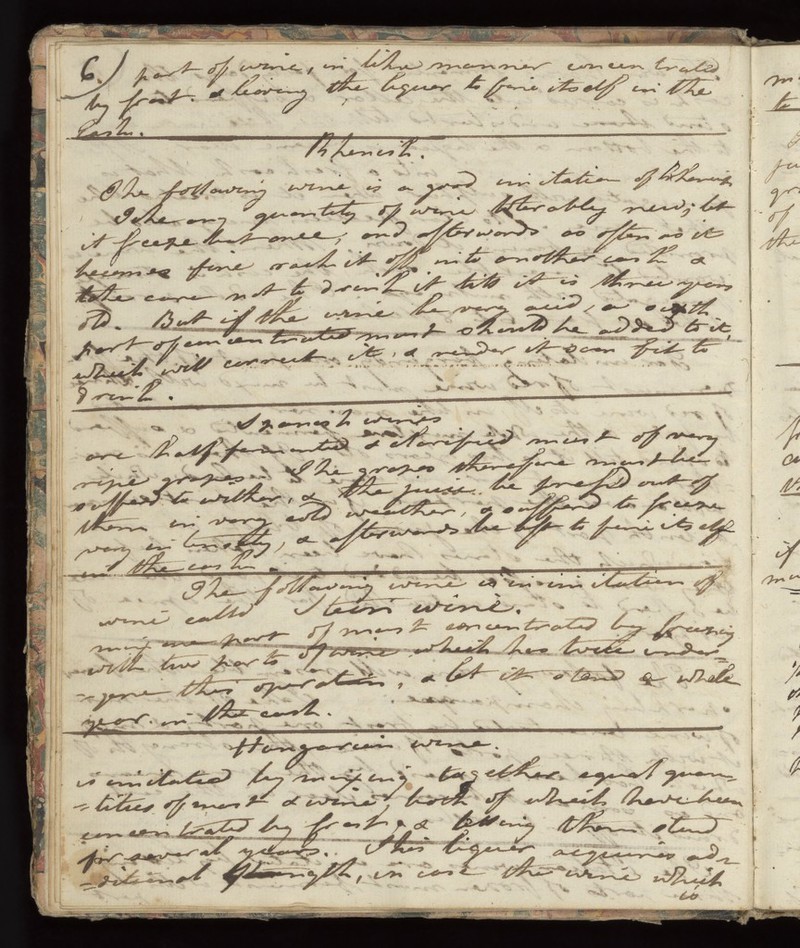 6.) part of wine, in like manner concentrated
by frost. & leaving the liquer to fine itself in the
Cask.
Rhenish.
The following wine is a good imitation of Rhenish
Take any quantity of wine tolerably new; let
it freeze but once; and afterwards as often as it
becomes fine rack it off into another cask &
take care not to drink it till it is three years
old. But if the wine be very acid, a sixth
part of concentrated must should be added to it,
which will correct it, & render it soon fit to
drink.
Spanish wines
are half fermented & clarified must of very
ripe grapes. The grapes therefore must be
sufferd to wither, & the juice be press'd out of
them in very cold weather, & sufferd to freeze
very intensely, & afterwards be left to fine itself
in the cask.
The following wine is in imitation of
wine calld Stein wine.
mix one part of must concentrated by freezing
with two parts of wine which has twice under=
=gone this operation, & let it stand a whole
year in the cask.
Hungarian wine.
is imitated by mixing together equal quan=
=tities of must & wine, both of which have been
concentrated by frost, & letting them stand
for several years. This liquer acquires ad=
=ditional strength, in case the wine which
is